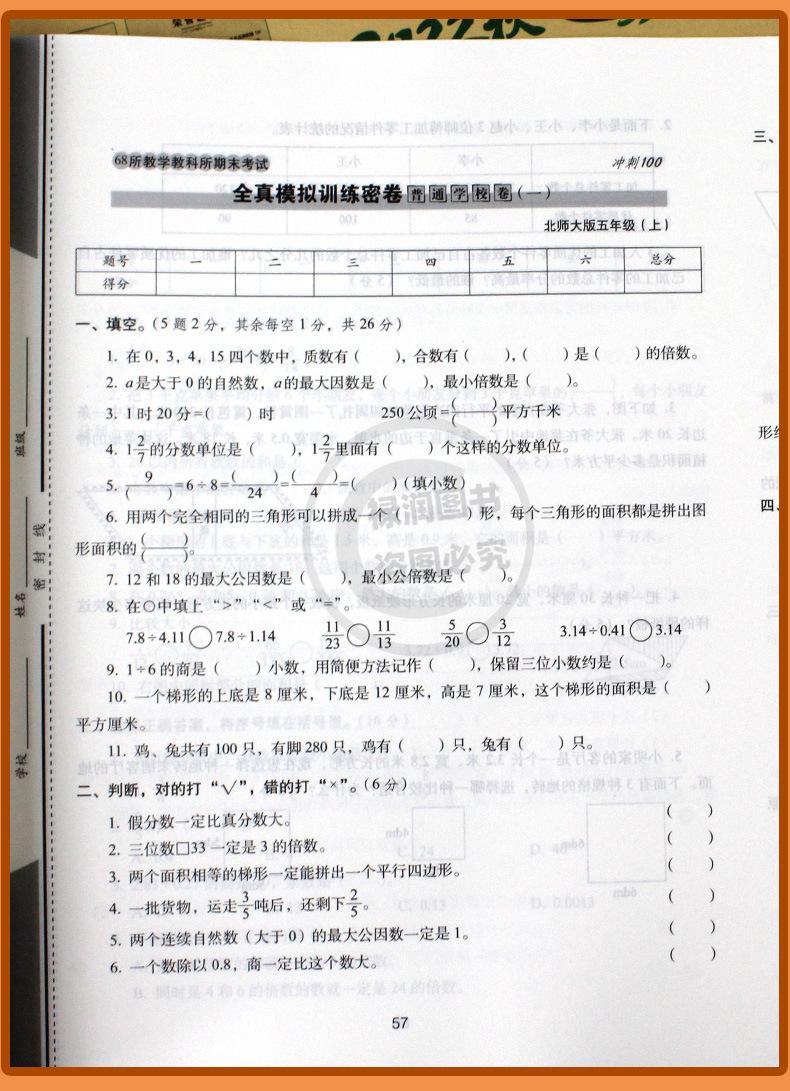 2022秋
68所教学教科所期末考试
冲刺100
全真模拟训练密卷 普通学校卷(一)
北师大版五年级(上)
题号 一 二 三 四 五 六 总分
得分
一、填空。(5题2分,其余每空1分,共26分)
1. 在0,3,4,15四个数中,质数有( ),合数有( ),( )是( )的倍数。
2. a是大于0的自然数,a的最大因数是( ),最小倍数是( )。
3. 1时20分=( )时 250公顷=( )/( )平方千米
4. 1 2/7的分数单位是( ),1 2/7里面有( )个这样的分数单位。
5. 9/( )=6÷8=( )/24=( )/4=( )(填小数)
6. 用两个完全相同的三角形可以拼成一个( )形,每个三角形的面积都是拼出图
形面积的( )/( )。
7. 12和18的最大公因数是( ),最小公倍数是( )。
8. 在○中填上“>”“<”或“=”。
7.8÷4.11○7.8÷1.14 11/23○11/13 5/20○3/12 3.14÷0.41○3.14
9. 1÷6的商是( )小数,用简便方法记作( ),保留三位小数约是( )。
10. 一个梯形的上底是8厘米,下底是12厘米,高是7厘米,这个梯形的面积是( )
平方厘米。
11. 鸡,兔共有100只,有脚280只,鸡有( )只,兔有( )只。
二、判断,对的打“√”,错的打“×”。(6分)
1. 假分数一定比真分数大。 ( )
2. 三位数□33一定是3的倍数。 ( )
3. 两个面积相等的梯形一定能拼出一个平行四边形。 ( )
4. 一批货物,运走3/5吨后,还剩下2/5。 ( )
5. 两个连续自然数(大于0)的最大公因数一定是1。 ( )
6. 一个数除以0.8,商一定比这个数大。 ( )
57
班级
姓名
学校
密封线
禄润图书
盗图必究
三、
四、